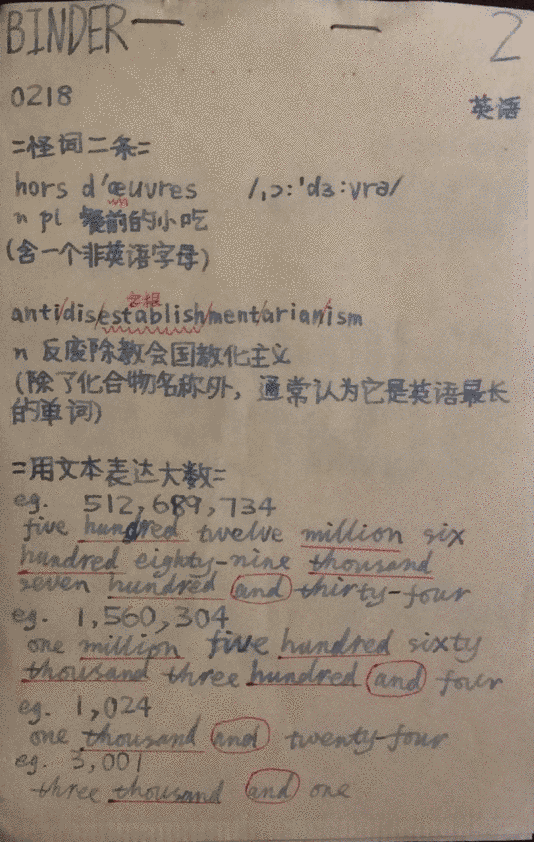 BINDER 2
0218 英语
=怪词二条=
hors d'œuvres /ˌɔːˈdɜːvrə/
n pl 餐前的小吃
(含一个非英语字母)
词根
anti/dis/establish/ment/arian/ism
n 反废除教会国教化主义
(除了化合物名称外，通常认为它是英语最长
的单词)
=用文本表达大数=
eg. 512,689,734
five hundred twelve million six
hundred eighty-nine thousand
seven hundred and thirty-four
eg. 1,560,304
one million five hundred sixty
thousand three hundred and four
eg. 1,024
one thousand and twenty-four
eg. 3,001
three thousand and one